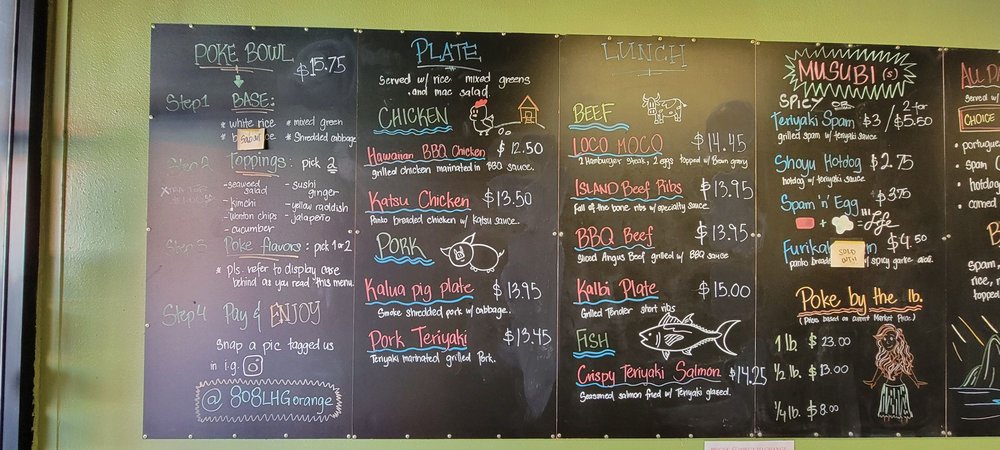 POKE BOWL
$15.75
Step 1 BASE:
* white rice * mixed green
* Shredded cabbage
Step 2 Toppings: pick 2
- seaweed salad
- kimchi
- wonton chips
- cucumber
- sushi ginger
- yellow raddish
- jalapeño
Step 3 Poke flavors: pick 1 or 2
* pls. refer to display case
behind as you read this menu.
Step 4 Pay & ENJOY
Snap a pic tagged us
in i.g.
@ 808LHGorange
PLATE
Served w/ rice mixed greens
and mac salad.
CHICKEN
Hawaiian BBQ Chicken $12.50
grilled chicken marinated in BBQ sauce.
Katsu Chicken $13.50
Panko breaded chicken w/ katsu sauce.
PORK
Kalua pig plate $13.95
Smoke shredded pork w/ cabbage.
Pork Teriyaki $13.45
Teriyaki marinated grilled Pork.
LUNCH
BEEF
LOCO MOCO $14.45
2 Hamburger steaks, 2 eggs topped w/ Brown gravy
ISLAND Beef Ribs $13.95
Fall of the bone ribs w/ specialty sauce.
BBQ Beef $13.95
Sliced Angus Beef grilled w/ BBQ sauce
Kalbi Plate $15.00
Grilled Tender short ribs
FISH
Crispy Teriyaki Salmon $14.25
Seasoned salmon fried w/ Teriyaki glased.
MUSUBI (s)
SPICY OR
Teriyaki Spam $3 / 2 for $5.50
grilled spam w/ teriyaki sauce
Shoyu Hotdog $2.75
hotdog w/ teriyaki sauce
Spam 'n' Egg $3.75
+ = Life
Furika $4.50
SOLD OUT
panko bread w/ spicy garlic aioli.
Poke by the lb.
(Prices based on current Market Price)
1 lb. $23.00
1/2 lb. $13.00
1/4 lb. $8.00
ALL DA
Served w/
CHOICE
• portugue
• spam
• hotdog
• corned
B
Spam,
rice,
topped